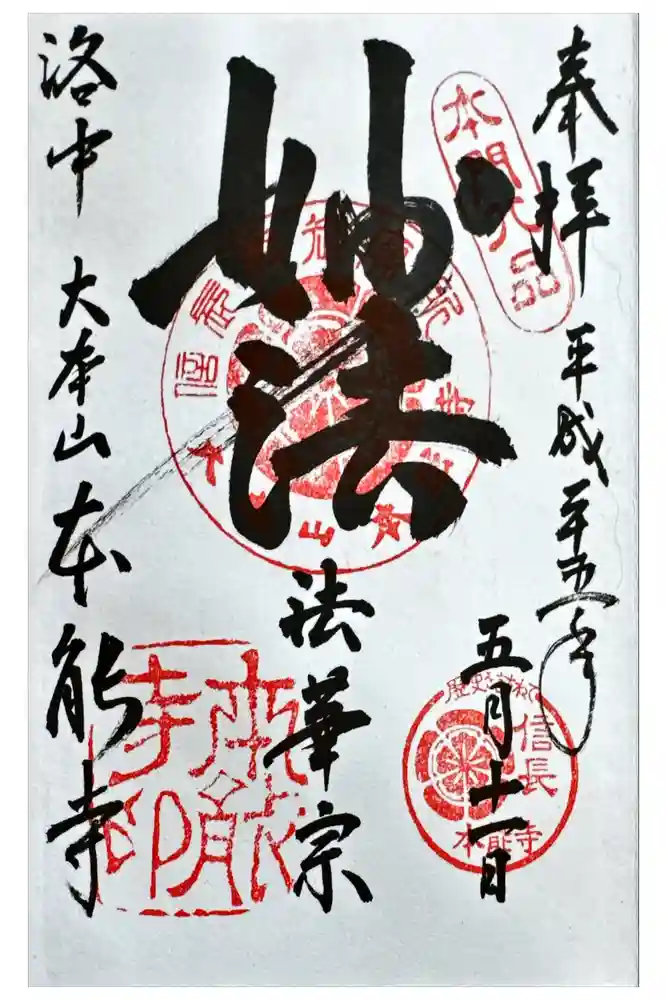 奉拝
平成二十五年
五月十一日
本門八品
妙法
法華宗
歴史を訪ねて
信長
本能寺
洛中
大本山
本能寺
本能
寺印